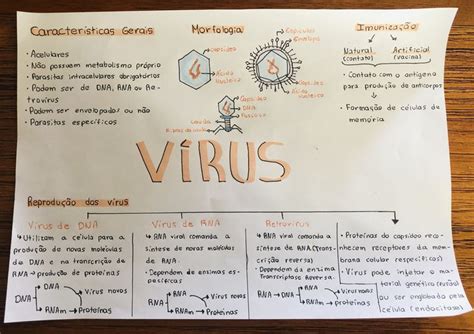 Características Gerais
• Acelulares
• Não possuem metabolismo próprio
• Parasitas intracelulares obrigatórios
• Podem ser de DNA, RNA ou Re-
trovírus
• Podem ser envelopados ou não
• Parasitas específicos
Morfologia
capsídeo
Ácido
nucleico
Capsídeo
Envelope
Ácido
nucleico
Capsídeo
DNA
Cauda
Imunização
Natural
(contato)
Artificial
(vacina)
• Contato com o antígeno
para produção de anticorpos
• Formação de células de
memória
VÍRUS
Reprodução dos vírus
Vírus de DNA
• Utilizam a célula para a
produção de novas moléculas
de DNA e na transcrição de
RNA → produção de proteínas
DNA → DNA → Vírus novos
RNAm → Proteínas
Vírus de RNA
• RNA viral comanda a
síntese de novas moléculas
de RNA.
• Dependem de enzimas es-
pecíficas
RNA → RNA → Vírus novos
RNAm → Proteínas
Retrovírus
• RNA viral comanda a
síntese de RNA (Trans-
crição reversa).
• Dependem da enzima
Transcriptase Reversa.
RNA → DNA → RNA → Vírus novos
RNAm → Proteínas
• Proteínas do capsídeo reco-
nhecem receptores da mem-
brana celular (específicos)
• Vírus pode injetar o ma-
terial genético (fusão)
ou ser englobado pela
célula (endocitose)